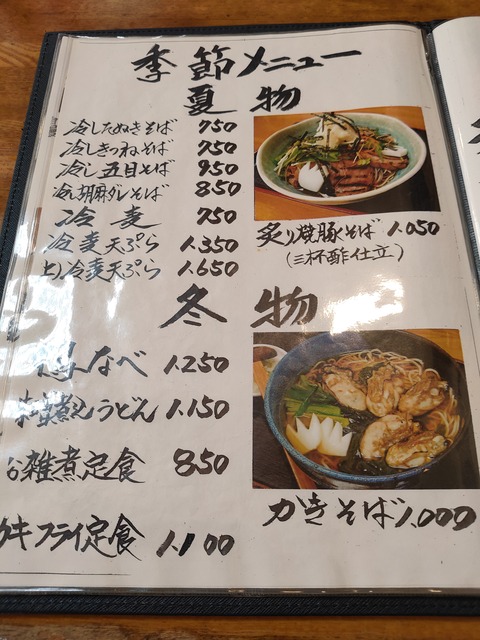 季節メニュー
夏物
冷したぬきそば 750
冷しきつねそば 750
冷し五目そば 950
冷し胡麻ダレそば 850
冷麦 750
冷麦天ぷら 1.350
上冷麦天ぷら 1.650
炙り焼豚そば 1.050
(三杯酢仕立)
冬物
なべ 1.250
煮込うどん 1.150
雑煮定食 850
カキフライ定食 1.100
かきそば 1.000